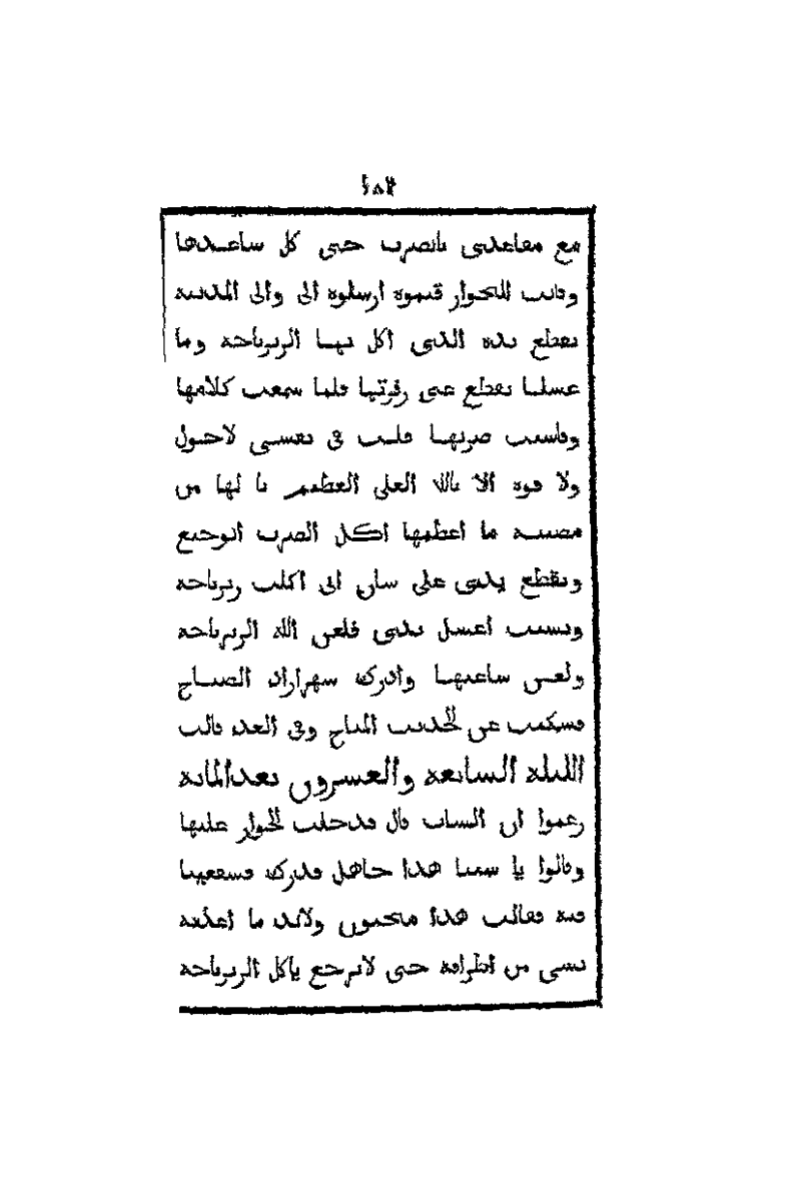 ١٥٤
مع مقاعدى بالضرب حتى كل ساعدها
وقالت للجوار قيموه ارسلوه الى والى المدينة
يقطع يده الذى اكل بها الزيرباجة وما
غسلها يقطع عنى زفرتها فلما سمعت كلامها
وقاسيت ضربها قلت فى نفسى لاحول
ولا قوة الا بالله العلى العظيم يا لها من
مصيبة ما اعظمها اكل الضرب الوجيع
وتقطع يدى على شان انى اكلت زيرباجة
ونسيت اغسل يدى فلعن الله الزيرباجة
ولعن ساعتها وادرك شهرازاد الصباح
فسكتت عن الحديث المباح وفى الغد قالت
الليلة السابعة والعشرون بعد المائة
زعموا ان الشاب قال فدخلت الجوار عليها
وقالوا يا ستنا هذا جاهل فدركه فشفعينا
فيه فقالت هذا مجنون ولابد ما اعذبه
بشى من اطرافه حتى لا يرجع ياكل الزيرباجة